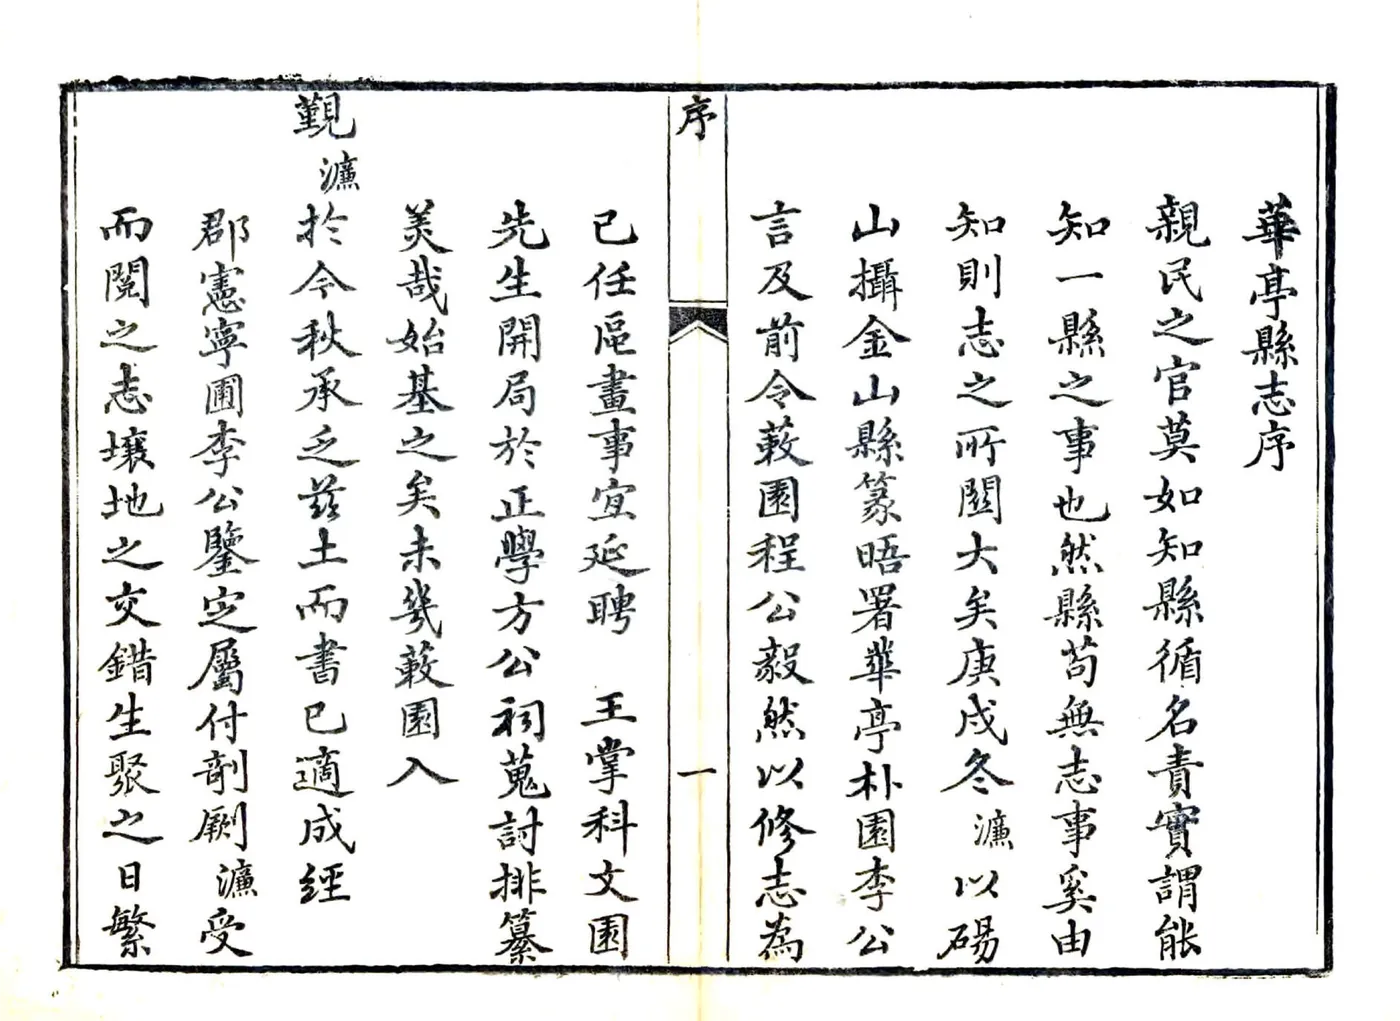 華亭縣志序
親民之官莫如知縣循名責實謂能
知一縣之事也然縣苟無志事奚由
知則志之所關大矣庚戌冬濂以碭
山攝金山縣篆晤署華亭朴園李公
言及前令蓛園程公毅然以修志為
序
一
己任區畫事宜延聘 王掌科文園
先生開局於正學方公祠蒐討排纂
美哉始基之矣未幾蓛園入
覲濂於今秋承乏茲土而書已適成經
郡憲寧圃李公鑒定屬付剞劂濂受
而閱之志壤地之交錯生聚之日繁